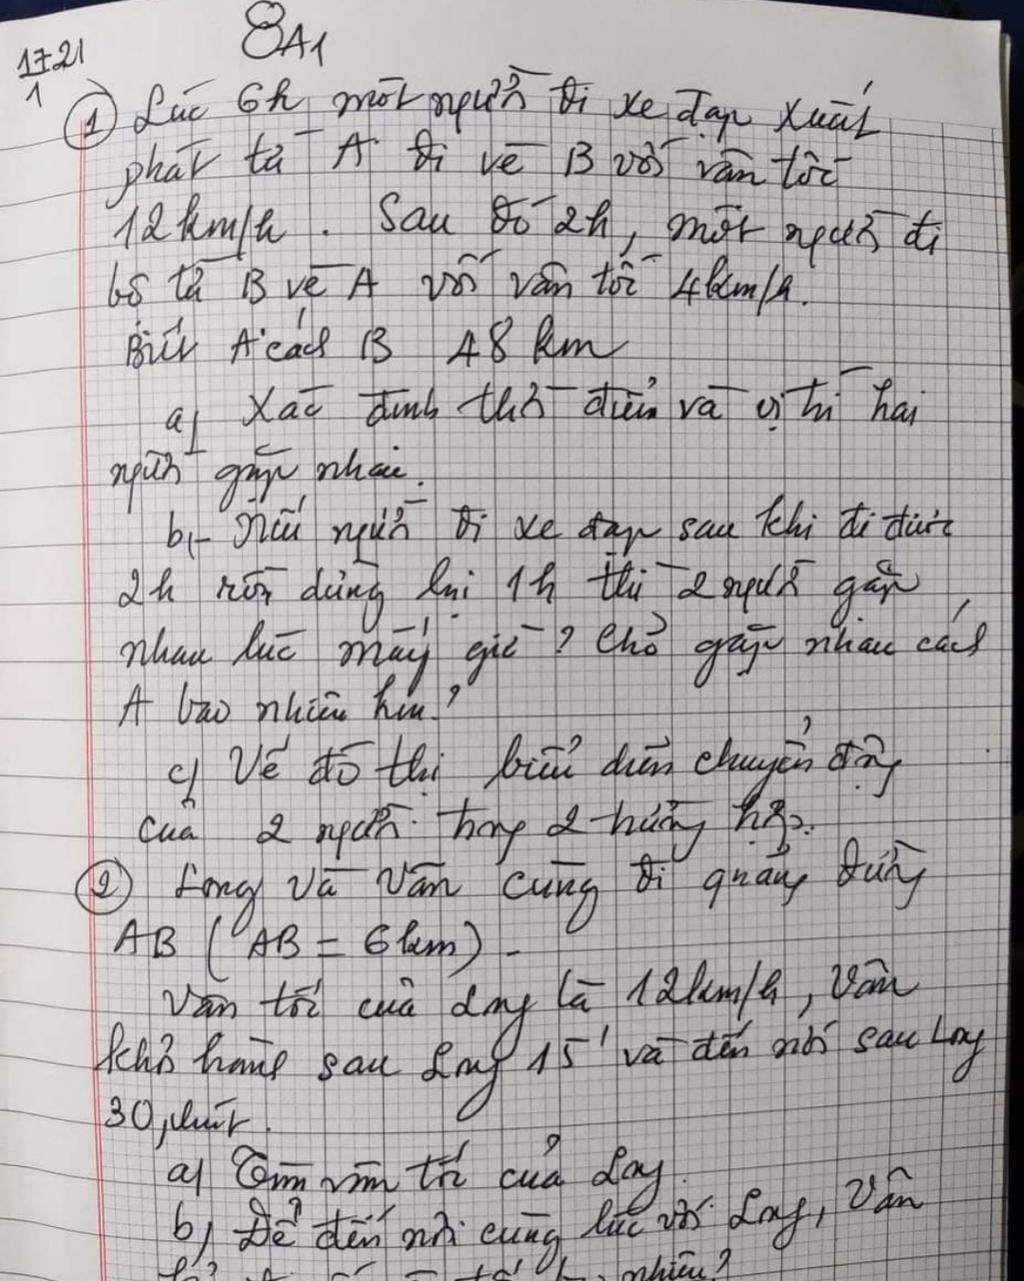 1721
1
8A1
① Lúc 6h một người đi xe đạp xuất
phát từ A đi về B với vận tốc
12km/h. Sau đó 2h, một người đi
bộ từ B về A với vận tốc 4km/h.
Biết A cách B 48 km
a) Xác định thời điểm và vị trí hai
người gặp nhau.
b, Nếu người đi xe đạp sau khi đi được
2h rồi dừng lại 1h thì 2 người gặp
nhau lúc mấy giờ? Chỗ gặp nhau cách
A bao nhiêu km?
c) Vẽ đồ thị biểu diễn chuyển động
của 2 người trong 2 trường hợp.
② Long và Vân cùng đi quãng đường
AB (AB = 6km).
Vận tốc của Long là 12km/h, Vân
khởi hành sau Long 15' và đến nơi sau Long
30 phút.
a) Tìm vận tốc của Long
b) Để đến nơi cùng lúc với Long, Vân
nhiêu?